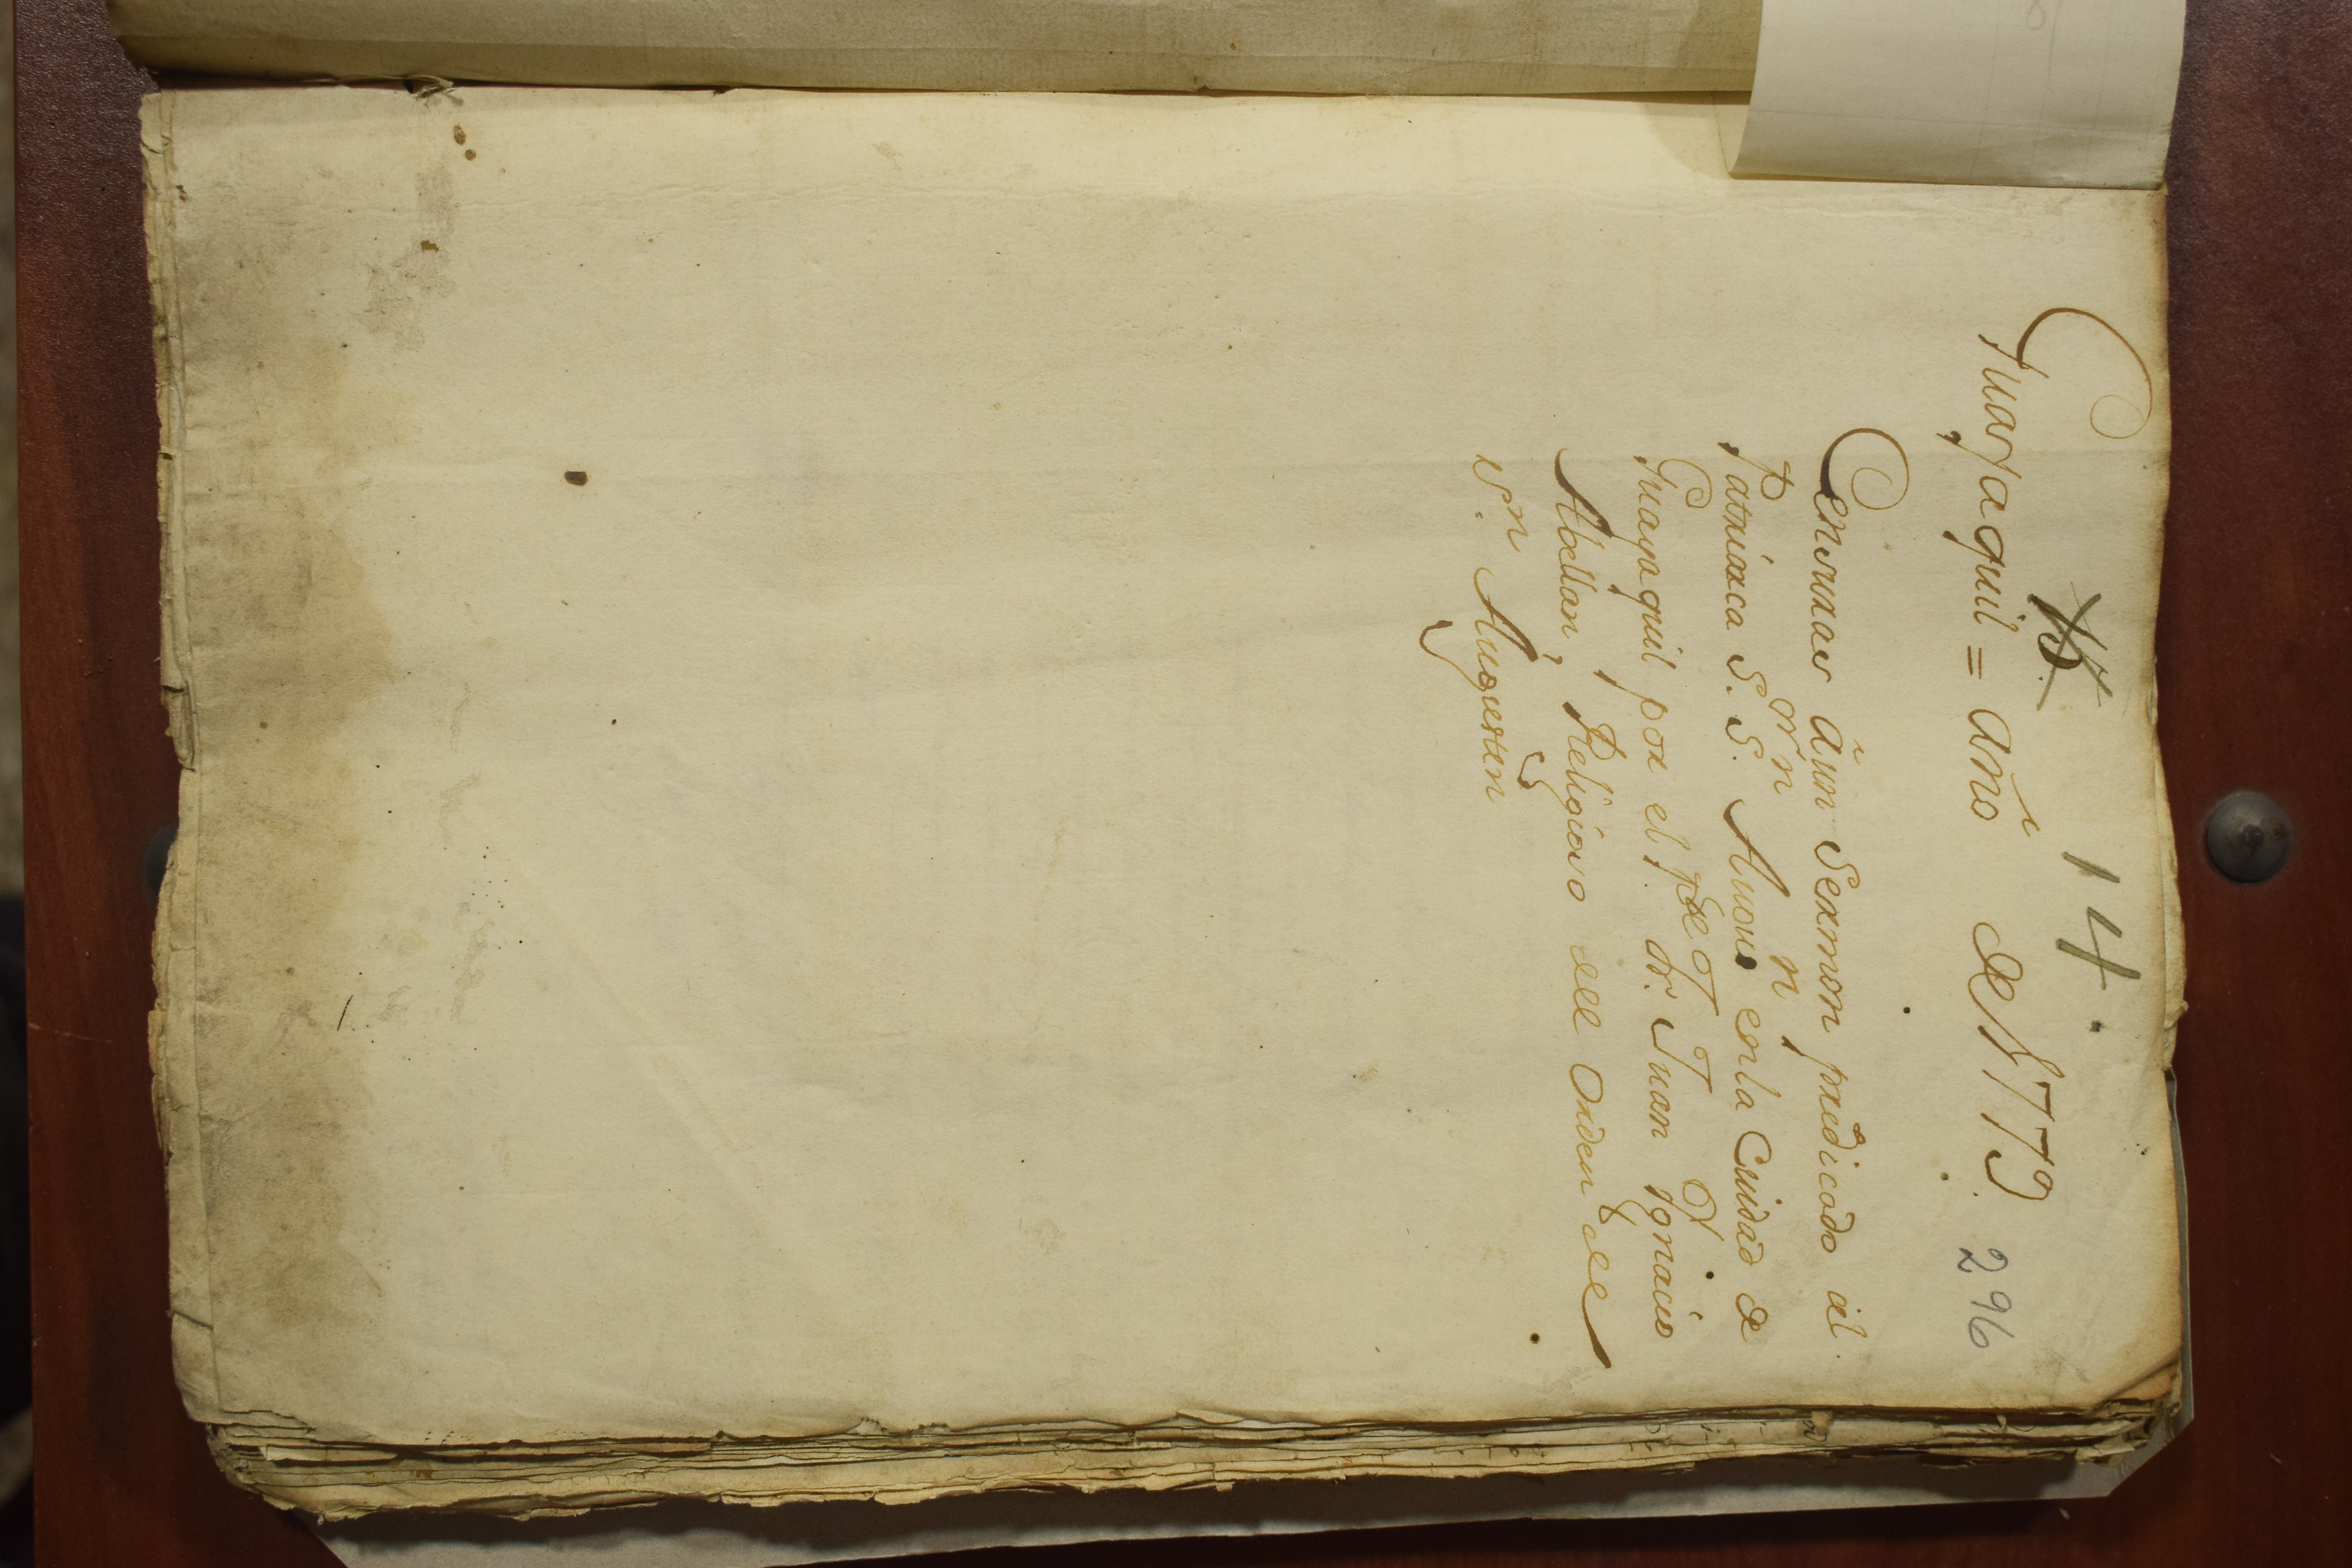 14.
Guayaquil = año de 1779.
296
Censuras â un Sermon predicado al
Patriarca S. S.n Agustin en la Ciudad de
Guayaquil por el P.e F. Juan Ignacio
Moran, Religioso del orden de
S.n Augustin